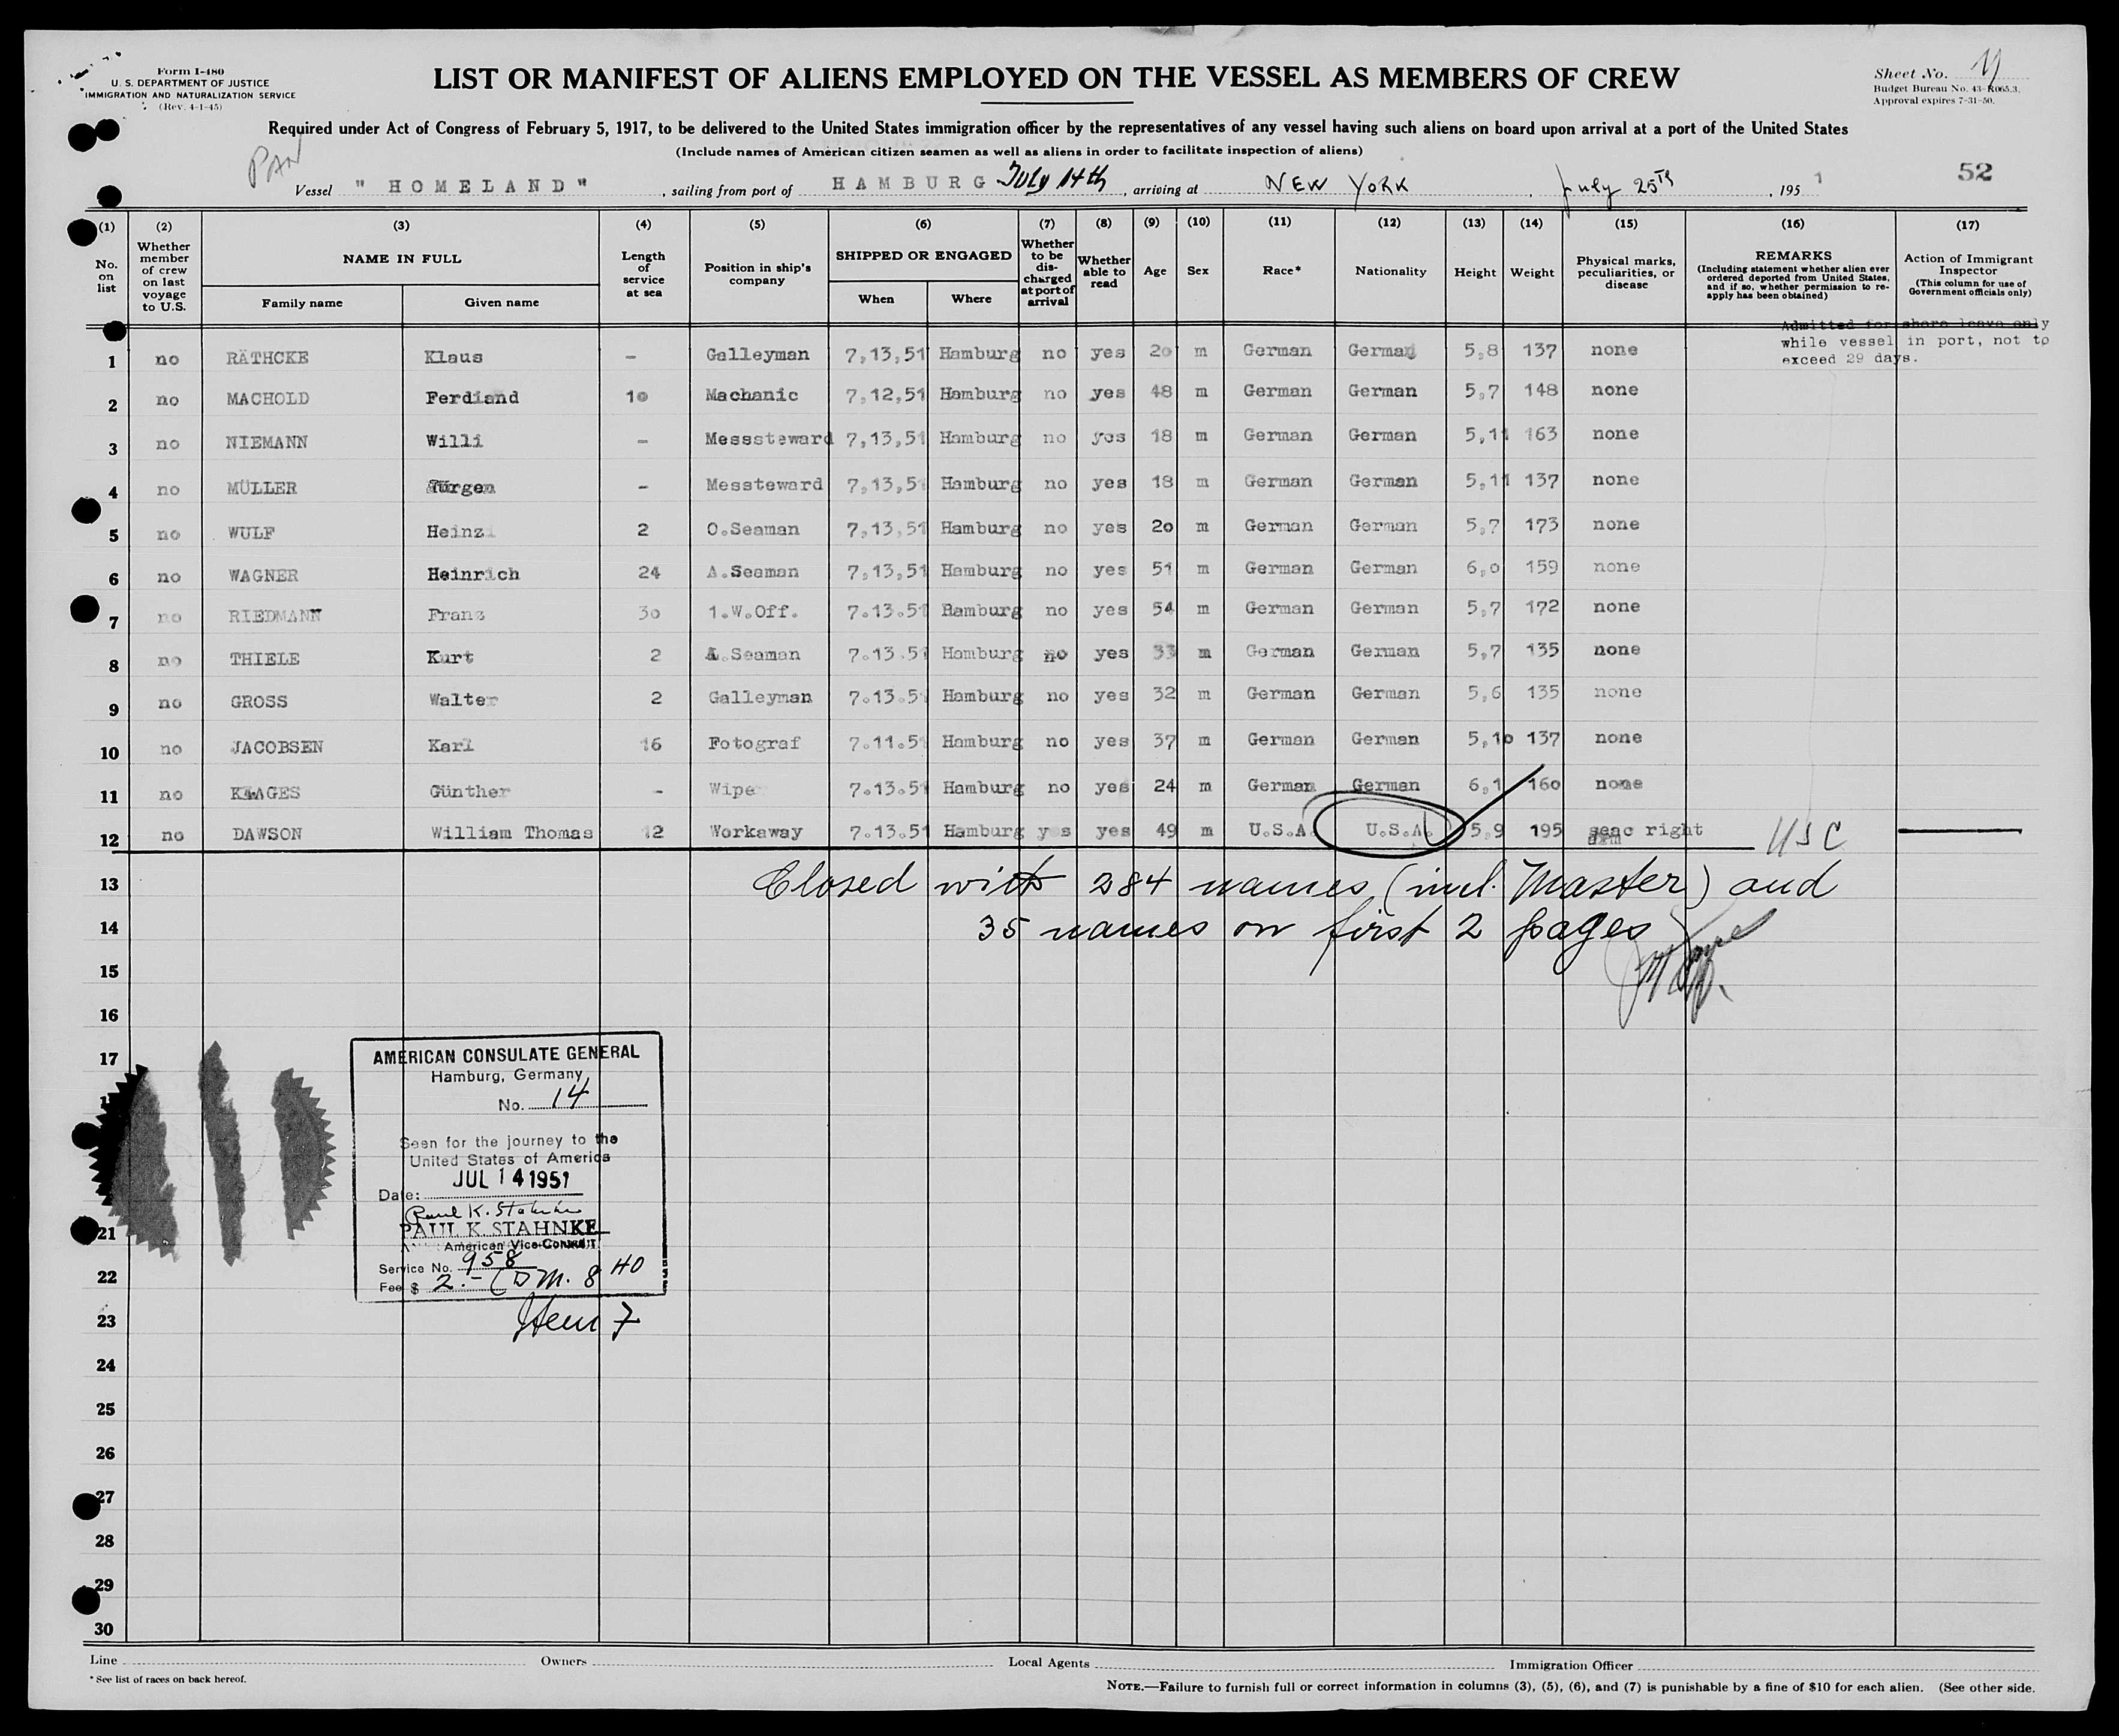 Form I-480
U. S. DEPARTMENT OF JUSTICE
IMMIGRATION AND NATURALIZATION SERVICE
(Rev. 4-1-45)
LIST OR MANIFEST OF ALIENS EMPLOYED ON THE VESSEL AS MEMBERS OF CREW
Sheet No.
Budget Bureau No. 43-R065.3.
Approval expires 7-31-50.
Required under Act of Congress of February 5, 1917, to be delivered to the United States immigration officer by the representatives of any vessel having such aliens on board upon arrival at a port of the United States
(Include names of American citizen seamen as well as aliens in order to facilitate inspection of aliens)
PAN
Vessel " HOMELAND " , sailing from port of HAMBURG July 14th , arriving at NEW YORK , July 25th , 1951
52
(1) (2) (3) (4) (5) (6) (7) (8) (9) (10) (11) (12) (13) (14) (15) (16) (17)
No. on list
Whether member of crew on last voyage to U.S.
NAME IN FULL
Family name
Given name
Length of service at sea
Position in ship's company
SHIPPED OR ENGAGED
When
Where
Whether to be discharged at port of arrival
Whether able to read
Age
Sex
Race*
Nationality
Height
Weight
Physical marks, peculiarities, or disease
REMARKS
(Including statement whether alien ever ordered deported from United States, and if so, whether permission to reapply has been obtained)
Action of Immigrant Inspector
(This column for use of Government officials only)
Admitted for shore leave only
while vessel in port, not to
exceed 29 days.
1 no RÄTHCKE Klaus - Galleyman 7,13,51 Hamburg no yes 20 m German German 5,8 137 none
2 no MACHOLD Ferdiand 10 Machanic 7,12,51 Hamburg no yes 48 m German German 5,7 148 none
3 no NIEMANN Willi - Messsteward 7,13,51 Hamburg no yes 18 m German German 5,11 163 none
4 no MÜLLER Jürgen - Messteward 7,13,51 Hamburg no yes 18 m German German 5,11 137 none
5 no WULF Heinz 2 O.Seaman 7,13,51 Hamburg no yes 20 m German German 5,7 173 none
6 no WAGNER Heinrich 24 A.Seaman 7,13,51 Hamburg no yes 51 m German German 6,0 159 none
7 no RIEDMANN Franz 30 1.W.Off. 7.13.51 Hamburg no yes 54 m German German 5,7 172 none
8 no THIELE Kurt 2 A.Seaman 7.13.51 Hamburg no yes 33 m German German 5,7 135 none
9 no GROSS Walter 2 Galleyman 7.13.51 Hamburg no yes 32 m German German 5,6 135 none
10 no JACOBSEN Karl 16 Fotograf 7.11.51 Hamburg no yes 37 m German German 5,10 137 none
11 no KLAGES Günther - Wiper 7.13.51 Hamburg no yes 24 m German German 6,1 160 none
12 no DAWSON William Thomas 12 Workaway 7.13.51 Hamburg yes yes 49 m U.S.A. U.S.A. 5,9 195 right arm USC
13 Closed with 284 names (incl. Master) and
14 35 names on first 2 pages
15
16
17
21
22
23
24
25
26
27
28
29
30
AMERICAN CONSULATE GENERAL
Hamburg, Germany
No. 14
Seen for the journey to the
United States of America
Date: JUL 14 1951
Paul K. Stahnke
PAUL K. STAHNKE
American Vice-Consul
Service No. 958
Fee $ 2.- (DM. 8 40
Item 7
Line
Owners
Local Agents
Immigration Officer
* See list of races on back hereof.
NOTE.—Failure to furnish full or correct information in columns (3), (5), (6), and (7) is punishable by a fine of $10 for each alien. (See other side.